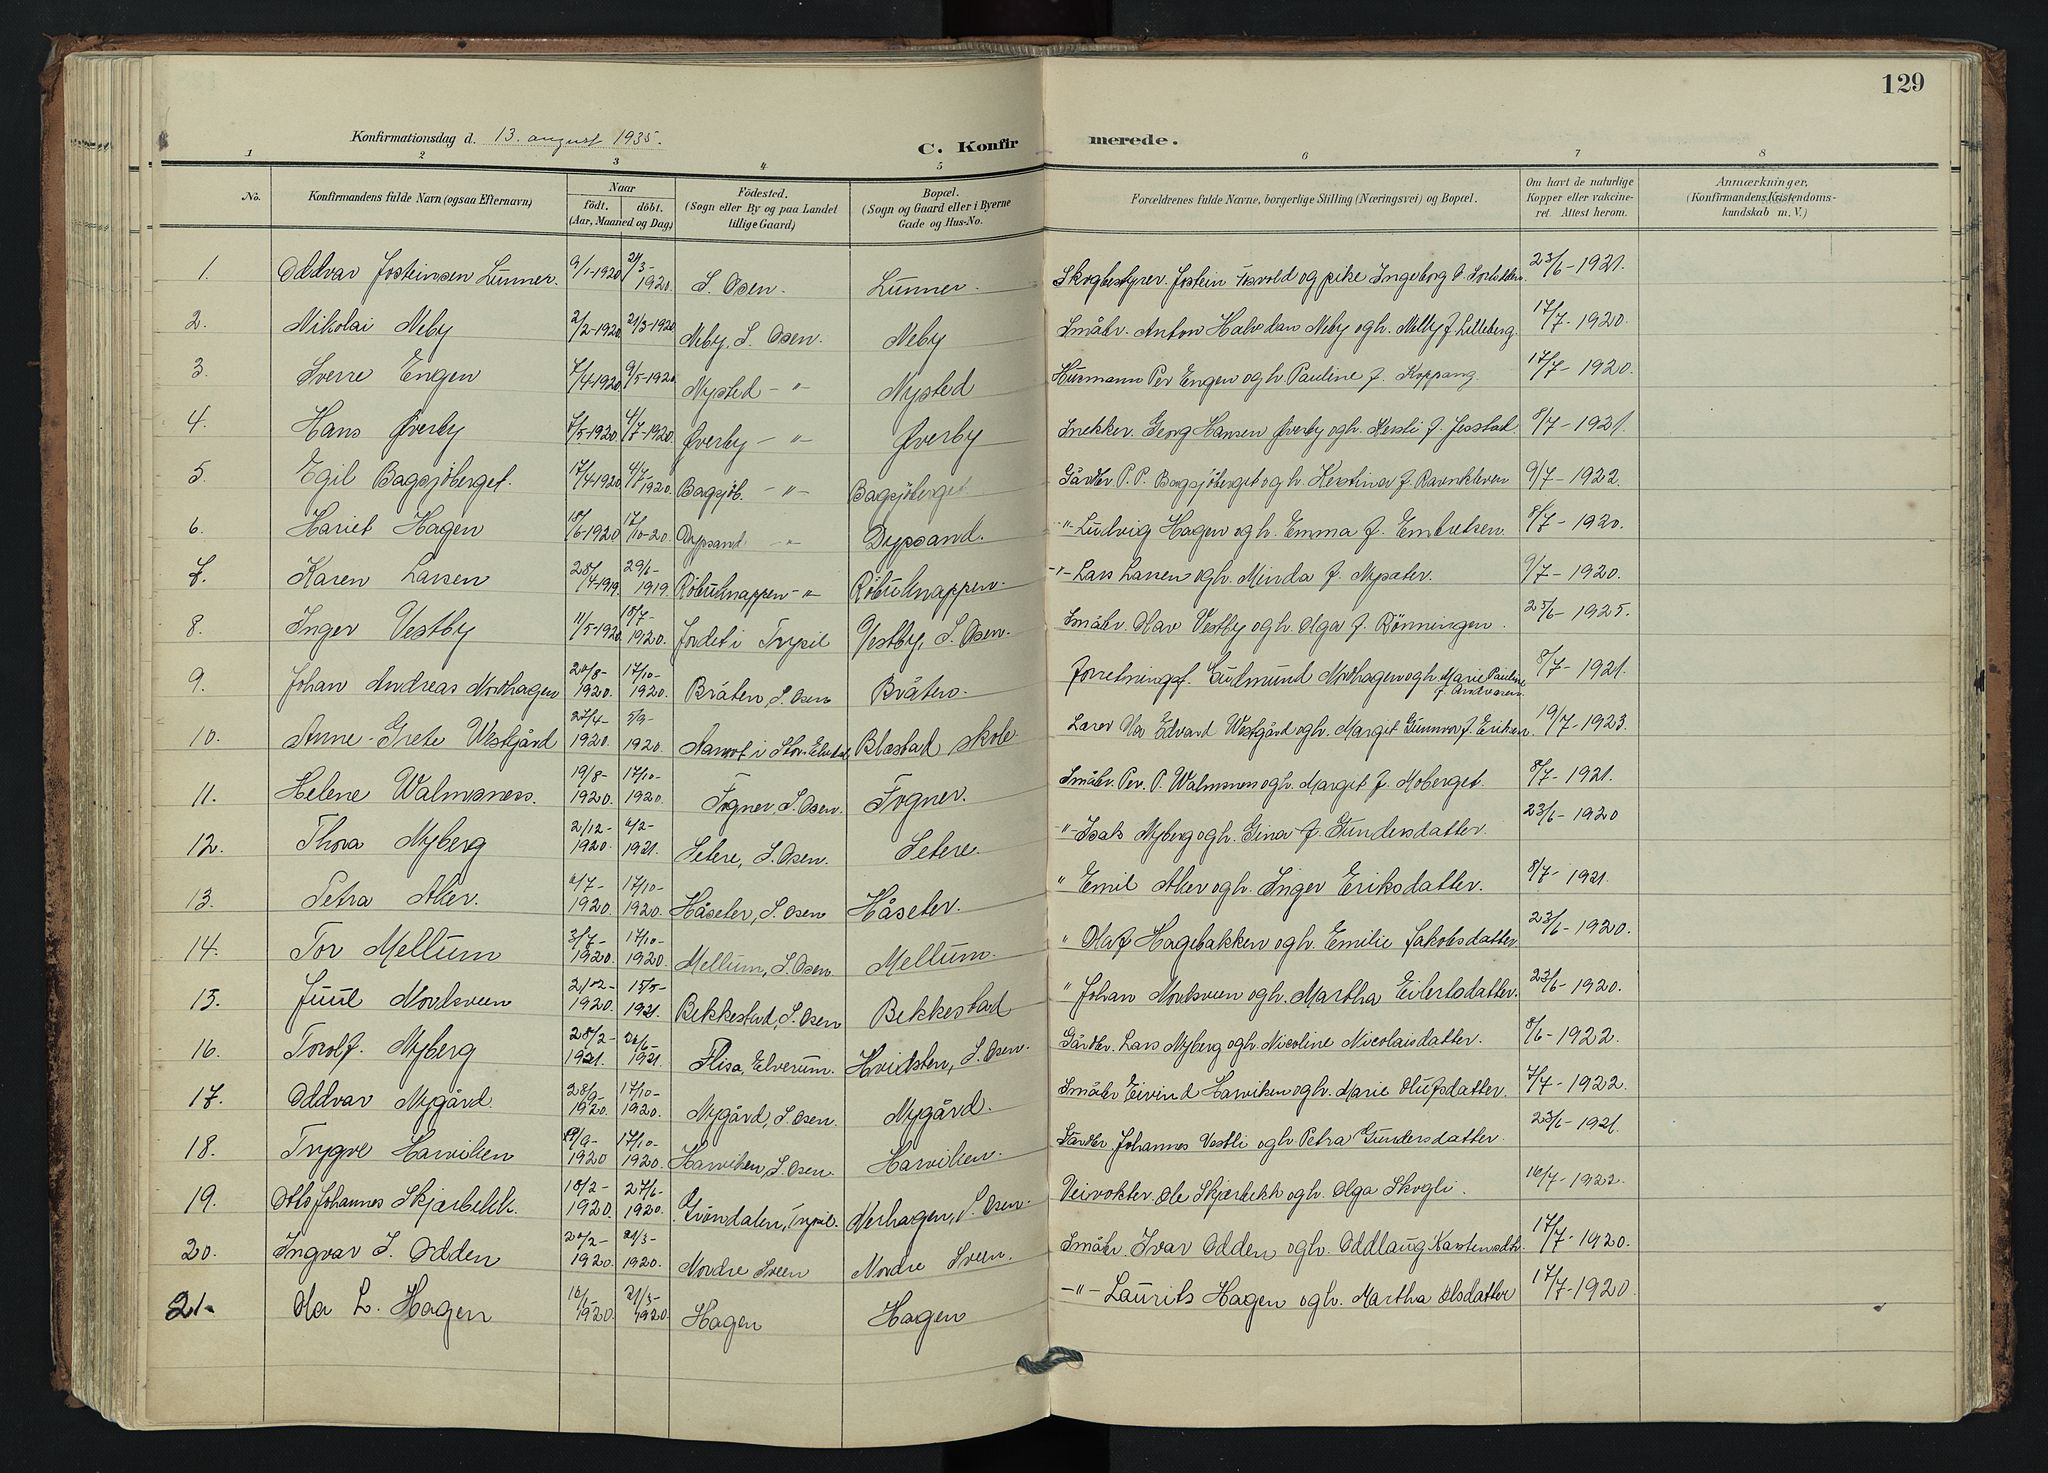 129
Konfirmationsdag d. 13. august 1935.
C. Konfirmerede.
1 2 3 4 5 6 7 8
No.
Konfirmandens fulde Navn (ogsaa Efternavn)
Naar
födt. döbt.
(Aar, Maaned og Dag)
Födested.
(Sogn eller By og paa Landet
tillige Gaard)
Bopæl.
(Sogn og Gaard eller i Byerne
Gade og Hus-No.
Forældrenes fulde Navne, borgerlige Stilling (Næringsvei) og Bopæl.
Om havt de naturlige
Kopper eller vakcine-
ret. Attest herom.
Anmærkninger,
(Konfirmandens Kristendoms-
kundskab m. V.)
1. Oddvar Josteinsen Lunner. 9/1-1920 21/3-1920. S. Osen. Lunner. Skogbestyrer. Jostein og pike Ingeborg 23/6-1921.
2. Nikolai Neby 2/2-1920 21/3-1920 Neby, S. Osen. Neby Småbr. Anton Halvdan Neby ogh. Nelly f. Lilleberg. 17/7-1920.
3. Sverre Engen 7/4-1920 9/5-1920 Nysted -"- Nysted Husmann Per Engen ogh. Pauline f. Koppang. 17/7-1920.
4. Hans Øverby 7/5-1920 4/7-1920 Øverby -"- Øverby Snekker. Georg Hansen Øverby ogh. Kersti f. Jesstad. 8/7-1921.
5. Egil Bagsjöberget. 17/4-1920 4/7-1920. Bagsjöb. -"- Bagsjöberget. Gårdbr P. P. Bagsjöberget ogh. Kerstina f. Ravnkleven 9/7-1922.
6. Hariet Hagen 18/6-1920 17/10-20. Dypsand. -"- Dypsand. -"- Ludvig Hagen ogh. Emma f. Embretsen. 8/7-1920.
7. Karen Larsen 28/4-1919. 29/6-1919. Röbuknappen -"- Röbuknappen. -"- Lars Larsen ogh. Minda f. Nysæter. 9/7-1920.
8. Inger Vestby 11/5-1920. 18/7-1920. Jordet i Trysil Vestby, S. Osen. Småbr. Olav Vestby ogh. Olga f. Rönningen. 25/6-1925.
9. Johan Andreas Nordhagen 20/8-1920. 17/10-1920. Bråten, S. Osen Bråten. Forretningsf. Gudmund Nordhagen ogh. Marie Pauline 8/7-1921.
10. Anne-Grete Westgård 27/4-1920. 5/9-1920. Aamot i Stor-Elvdal Blæstad skole Lærer Ola Edvard Westgård ogh. Marget Gunnvor f. Eriksen. 19/7-1923.
11. Helene Walmsness. 19/8-1920. 17/10-1920. Fogner, S. Osen. Fogner. Småbr. Per. P. Walmsnes ogh. Margit f. Moberget. 8/7-1921.
12. Thora Nyberg 2/12-1920. 1921. Setere, S. Osen. Setere. -"- Isak Nyberg ogh. Gina f. Gundersdatter. 23/6-1920
13. Petra Aker. 1920. 17/10-1920. Håseter, S. Osen Håseter. " Emil Aker ogh. Inger Eriksdatter. 8/7-1921.
14. Tor Mellum 3/7-1920. 17/10-1920. Mellum, S. Osen Mellum. " Olaf Hagebakken ogh. Emilie Jakobsdatter. 23/6-1920.
15. Juul Nordsveen 21/12-1920. 15/5-1921. Bekkestad, S. Osen Bekkestad " Johan Nordsveen ogh. Martha Eilertsdatter. 23/6-1920.
16. Torolf. Nyberg 28/2-1921. 26/6-1921. Flisa, Elverum. Hvidsten, S. Osen. Gårdbr. Lars Nyberg ogh. Nicoline Nicolaisdatter. 8/6-1922.
17. Oddvar Nygård. 28/9-1920. 17/10-1920. Nygård, S. Osen. Nygård. Småbr Eivind Harviken ogh. Marie Olufsdatter. 7/7-1922.
18. Trygve Harviken 1920 17/10-1920. Harviken, S. Osen. Harviken. Gårdbr Johannes Vestli ogh Petra Gundersdatter. 23/6-1921.
19. Otto Johannes Skjærbekk. 18/2-1920. 27/6-1920. Gröndalen, Trysil. Nerhagen, S. Osen. Veivokter. Ole Skjærbekk ogh. Olga Skogli. 16/7-1922.
20. Ingvar I. Odden 20/2-1920. 21/3-1920. Nordre Sveen Nordre Sveen. Småbr. Ivar Odden ogh. Oddlaug Karstensdtr. 17/7-1920.
21. Ola L. Hagen 16/1-1920. 21/3-1920 Hagen Hagen -"- Laurits Hagen ogh. Martha Olsdatter 17/7-1920.